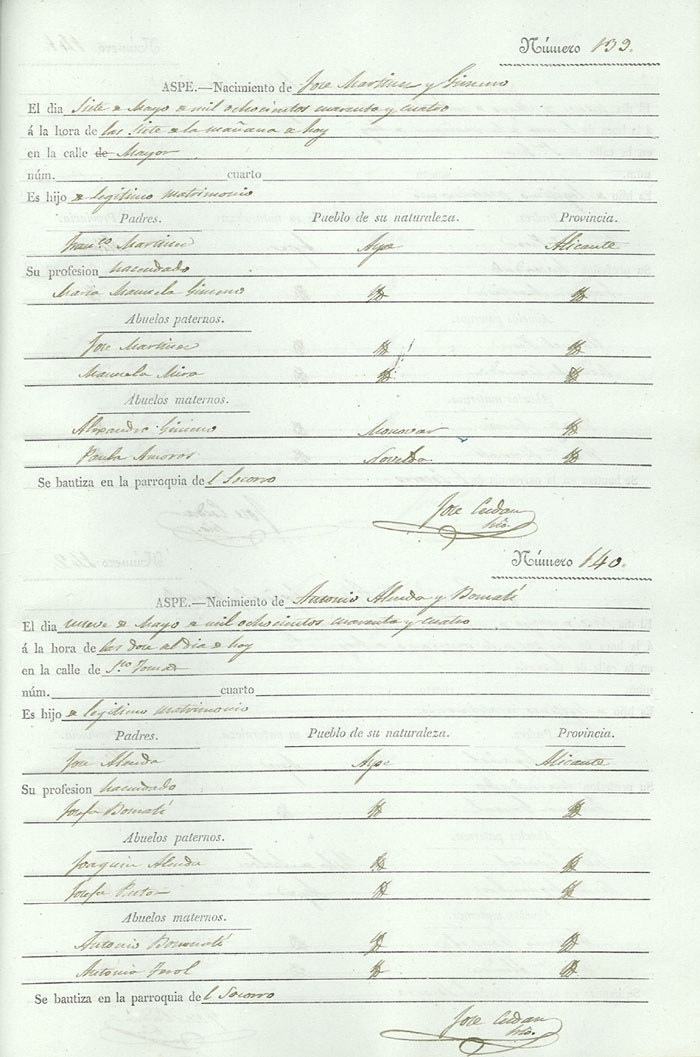 Número 139.
ASPE.—Nacimiento de Jose Martinez y Gimeno
El dia Siete de Mayo de mil ochocientos cuarenta y cuatro
á la hora de las siete de la mañana de hoy
en la calle de Mayor
núm. cuarto
Es hijo de legitimo matrimonio
Padres. Pueblo de su naturaleza. Provincia.
Franco. Martinez Aspe Alicante
Su profesion hacendado
Maria Manuela Gimeno
Abuelos paternos.
Jose Martinez
Manuela Mira
Abuelos maternos.
Alexandro Gimeno Monovar
Paula Amoros Novelda
Se bautiza en la parroquia del Socorro
Jose
Número 140.
ASPE.—Nacimiento de Antonio Alenda y Bonmatí
El dia nueve de Mayo de mil ochocientos cuarenta y cuatro
á la hora de las doce al dia de hoy
en la calle de Sto. Tomas
núm. cuarto
Es hijo de legitimo matrimonio
Padres. Pueblo de su naturaleza. Provincia.
Jose Alenda Aspe Alicante
Su profesion hacendado
Josefa Bonmatí
Abuelos paternos.
Joaquin Alenda
Josefa
Abuelos maternos.
Antonio Bonmatí
Antonia
Se bautiza en la parroquia del Socorro
Jose